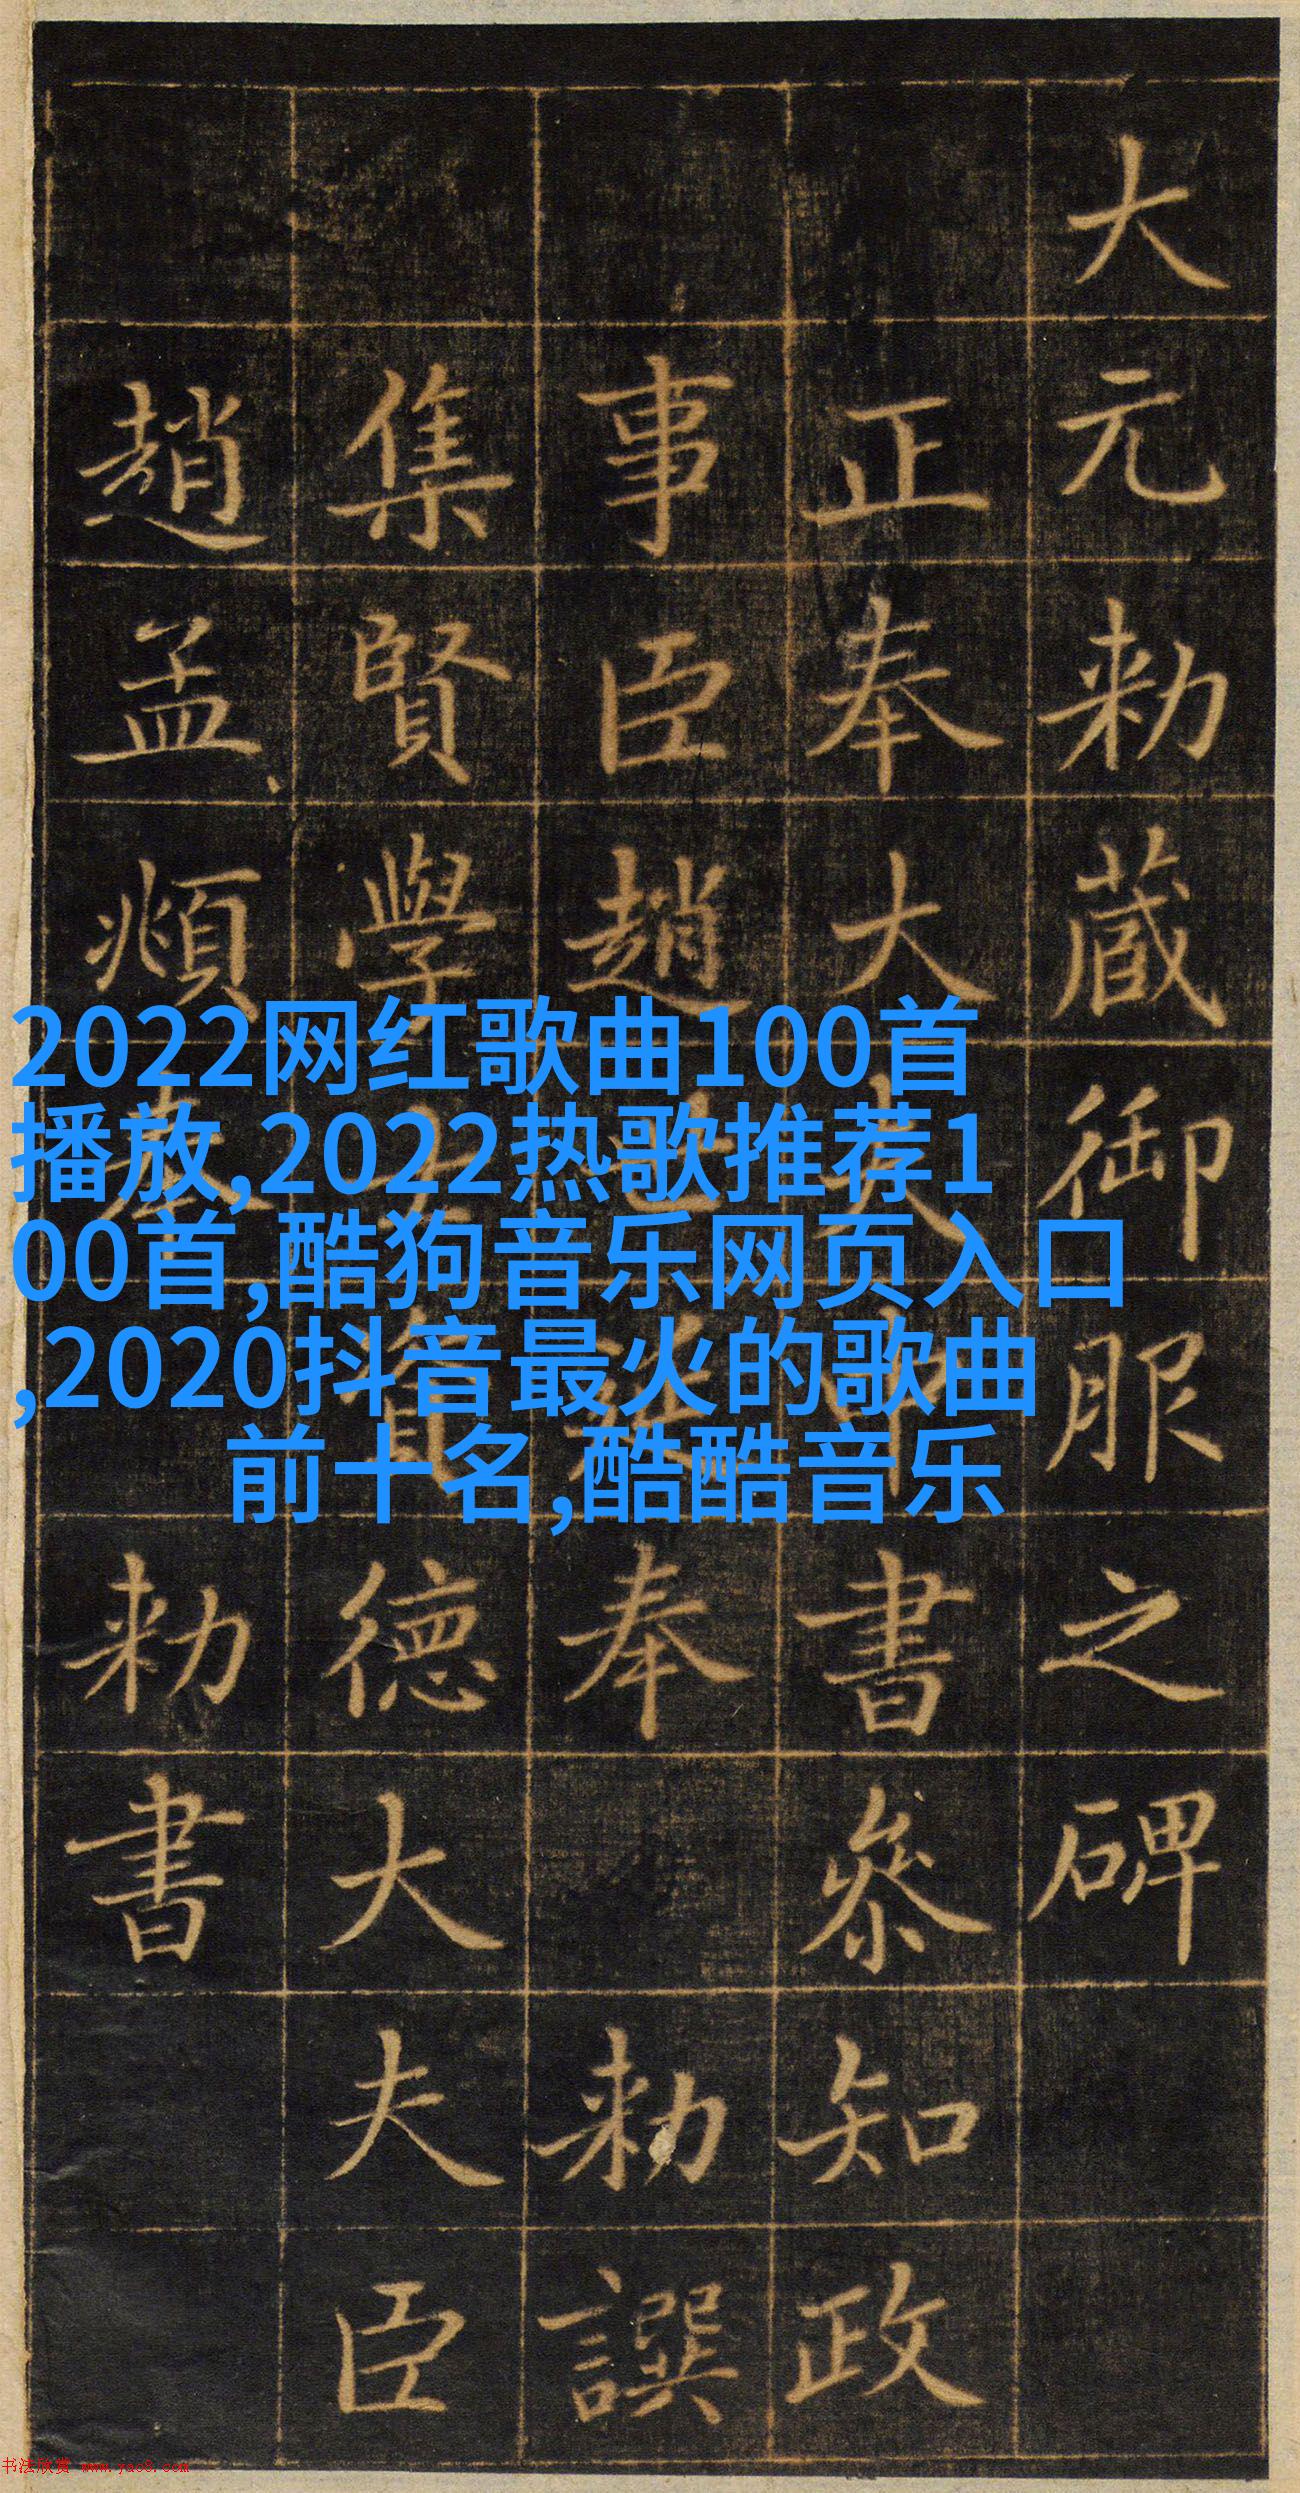 大元勑藏御服之碑
正奉大夫中書參知政
事臣趙世延奉 勑譔
集賢學士資德大夫臣
趙孟頫奉 勑書
2022网红歌曲100首
播放,2022热歌推荐1
00首,酷狗音乐网页入口
,2020抖音最火的歌曲
前十名,酷酷音乐
书法欣赏 www.yac8.com